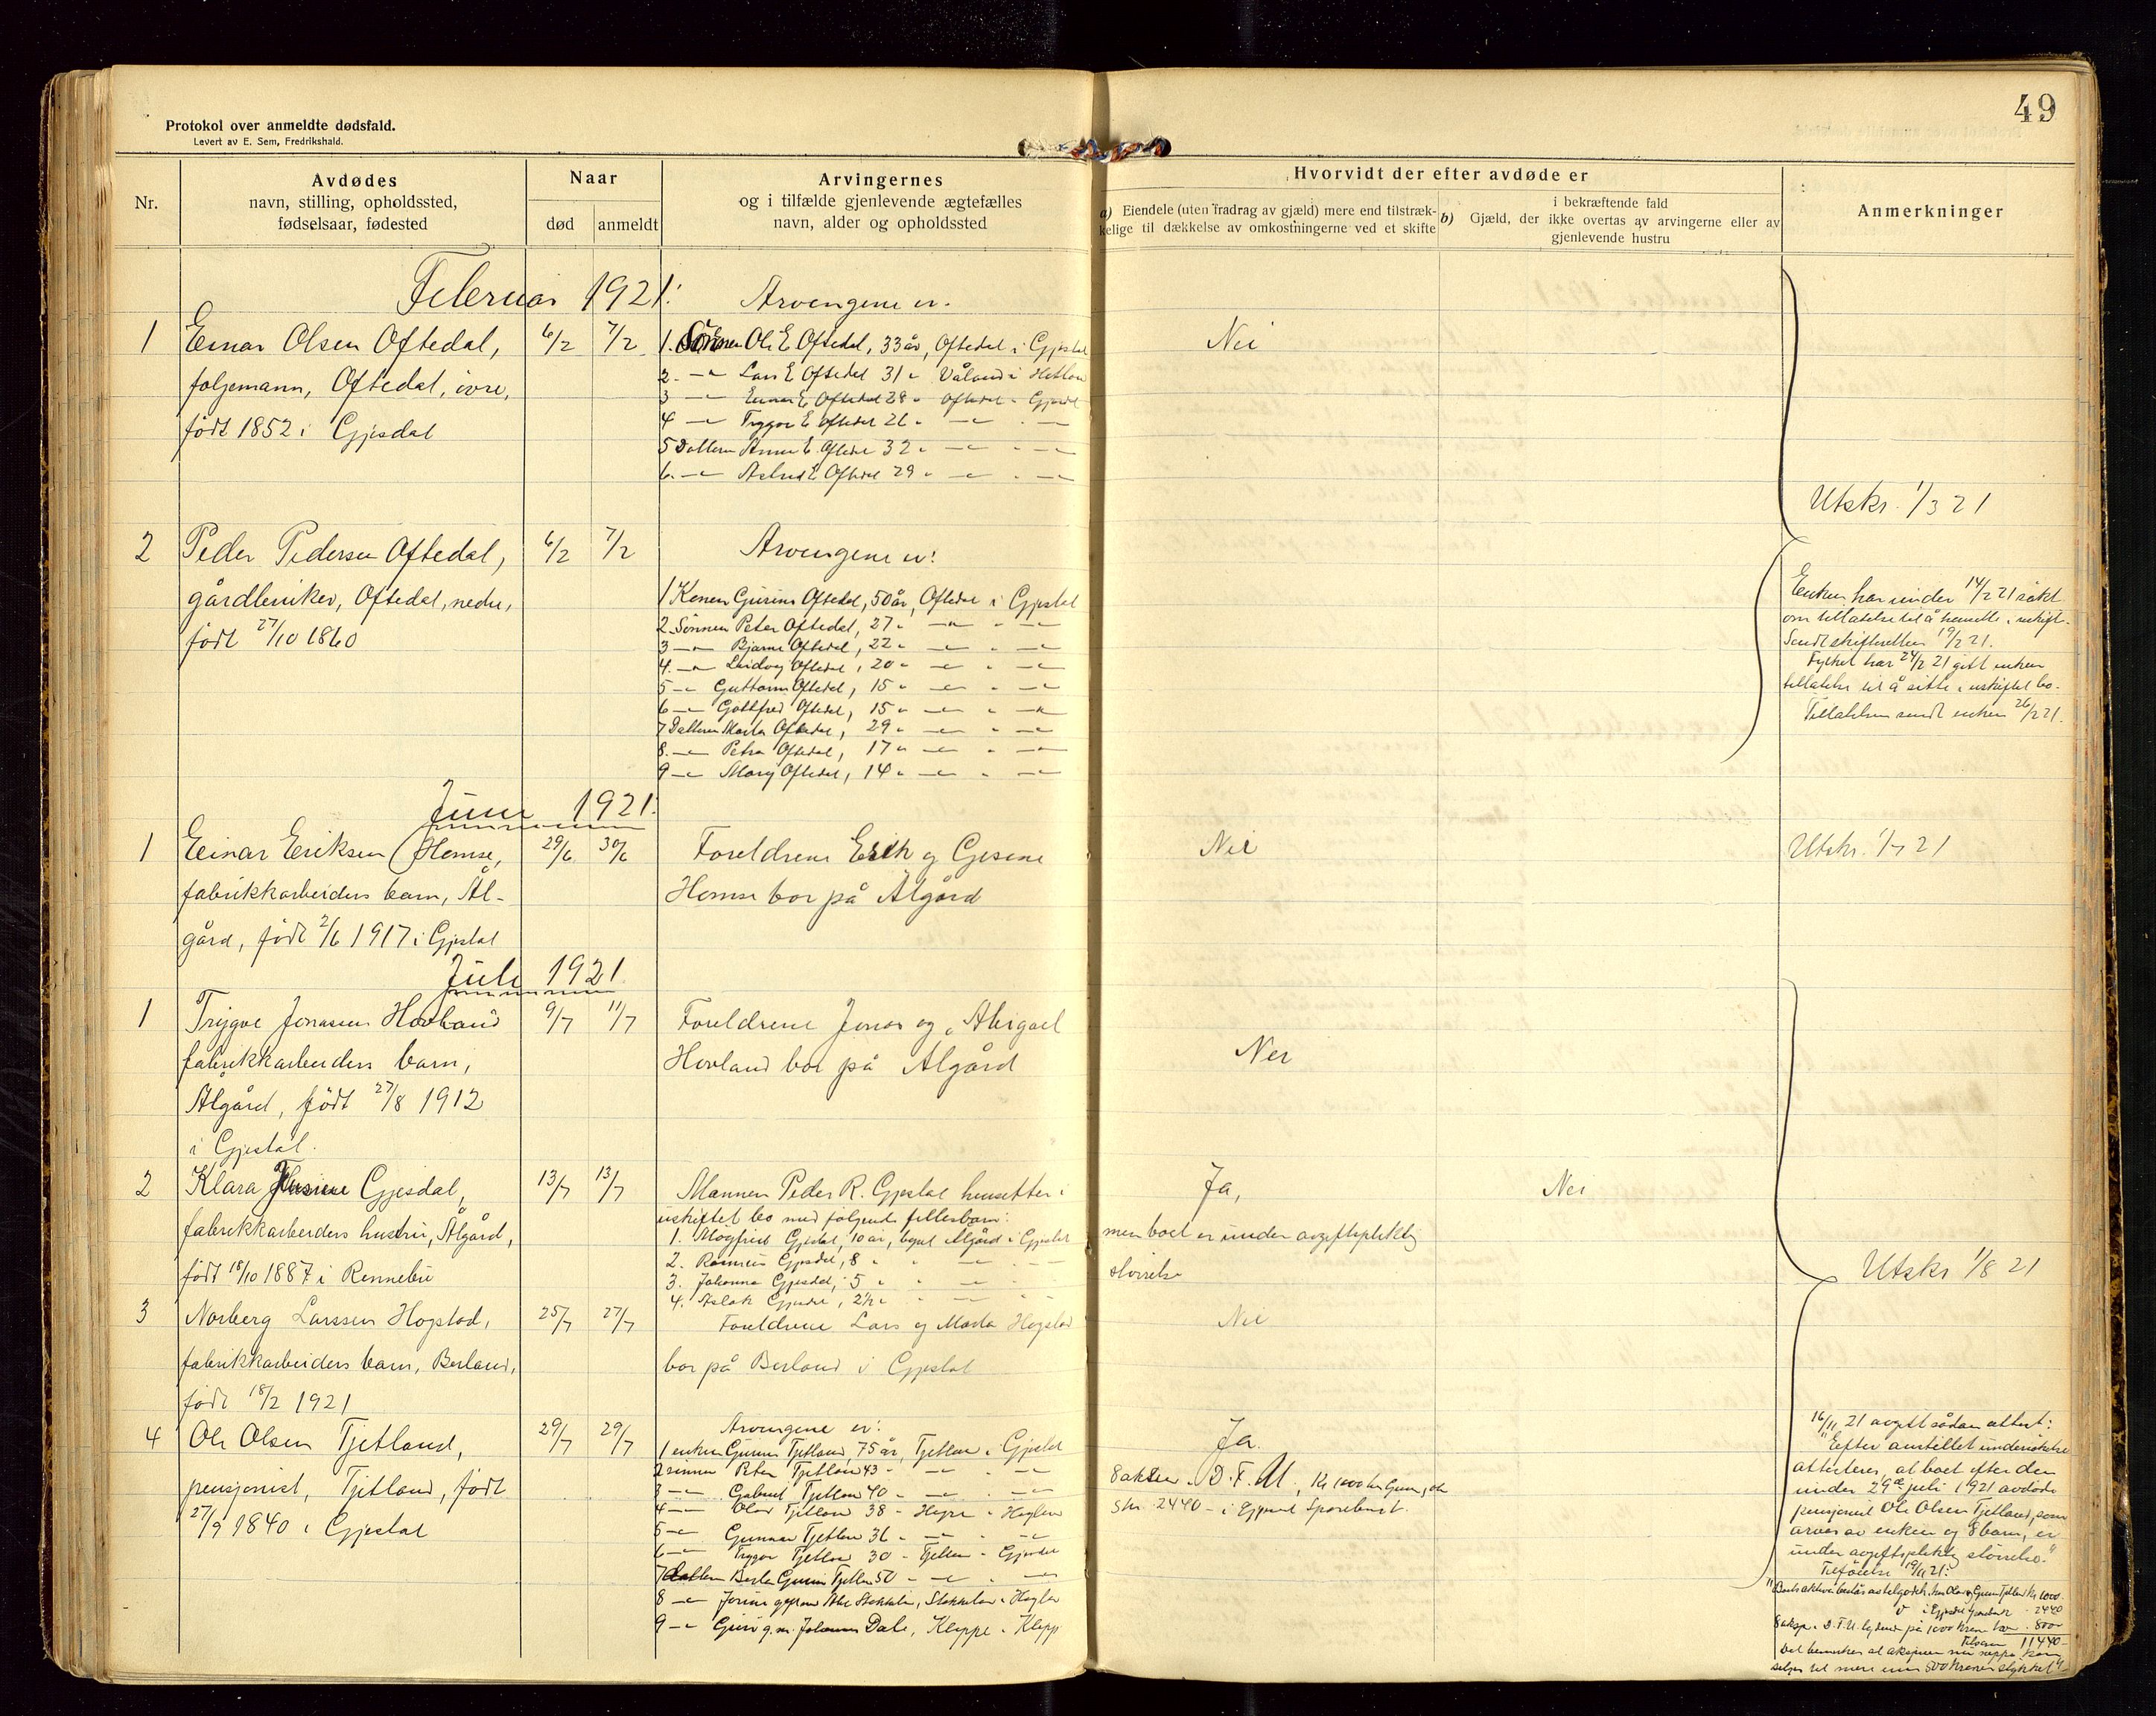 49
Protokol over anmeldte dødsfald.
Levert av E. Sem, Fredrikshald.
Nr.
Avdødes
navn, stilling, opholdssted,
fødselsaar, fødested
Naar
død
anmeldt
Arvingernes
og i tilfælde gjenlevende ægtefælles
navn, alder og opholdssted
Hvorvidt der efter avdøde er
a) Eiendele (uten fradrag av gjæld) mere end tilstræk-
kelige til dækkelse av omkostningerne ved et skifte
i bekræftende fald
b) Gjæld, der ikke overtas av arvingerne eller av
gjenlevende hustru
Anmerkninger
Februar 1921.
1
Einar Olsen Oftedal,
følgemann, Oftedal, øvre,
født 1852 i Gjesdal
6/2
7/2
Arvingene er:
1. Sønnen Ole E Oftedal, 33 år, Oftedal i Gjesdal
2. -"- Lars E Oftedal 31 " Våland i Hetland
3 -"- Einar E Oftedal 28 " Oftedal " Gjesdal
4 -"- Trygve E Oftedal 26 " -"- " -"-
5 Datteren Anna E. Oftedal 32 " -"- " -"-
6. -"- Astrid E Oftedal 29 " -"- " -"-
Nei
Utskr. 1/3 21
2
Peder Pedersen Oftedal,
gårdbruker, Oftedal, nedre,
født 27/10 1860
6/2
7/2
Arvingene er:
1 Konen Gurine Oftedal, 50 år, Oftedal i Gjesdal
2. Sønnen Peter Oftedal, 27 " -"- " -"-
3 -"- Bjarne Oftedal, 22 " -"- " -"-
4. -"- Ludvig Oftedal, 20 " -"- " -"-
5 -"- Guttorm Oftedal, 15 " -"- " -"-
6 -"- Gottfred Oftedal, 15 " -"- " -"-
7 Datteren Marta Oftedal, 29 " -"- " -"-
8. -"- Petra Oftedal, 17 " -"- " -"-
9 -"- Mary Oftedal, 14 " -"- " -"-
Enken har under 14/2 21 søkt
om tillatelse til å hensitte i uskift.
Sendt skifteretten 19/2 21.
Fylket har 24/2 21 gitt enken
tillatelse til å sitte i uskiftet bo.
Tillatelsen sendt enken 26/2 21.
Juni 1921.
1
Einar Eriksen Homse,
fabrikkarbeiders barn, Ål-
gård, født 2/6 1917 i Gjesdal
29/6
30/6
Foreldrene Erik og Gesine
Homse bor på Ålgård
Nei
Utskr. 1/7 21
Juli 1921.
1
Trygve Jonassen Hovland
fabrikkarbeiders barn,
Ålgård, født 27/8 1912
i Gjesdal.
9/7
11/7
Foreldrene Jonas og Abigael
Hovland bor på Ålgård
Nei
2
Klara Gjesdal,
fabrikkarbeiders hustru, Ålgård,
født 18/10 1887 i Rennebu
13/7
13/7
Mannen Peder R. Gjesdal hensitter i
uskiftet bo med følgende fellesbarn:
1. Gjesdal, 10 år, Ålgård i Gjesdal
2. Rasmus Gjesdal, 8 " " -"- " -"-
3. Johanna Gjesdal, 5 " " -"-
4. Aslak Gjesdal, 2½ " " -"- " "
Ja,
men boet er under avgiftspliktig
størrelse
Nei
Utskr 1/8 21
3
Norberg Larssen Hogstad,
fabrikkarbeiders barn, Berland,
født 18/2 1921
25/7
27/7
Foreldrene Lars og Marta Hogstad
bor på Berland i Gjesdal
Nei
4
Ole Olsen Tjetland,
pensjonist, Tjetland, født
27/9 1840 i Gjesdal
29/7
29/7
Arvingene er:
1 enken Gunna Tjetland, 75 år, Tjetland i Gjesdal
2 sønnen Peter Tjetland 43 - -"- " -"-
3 -"- Gabriel Tjetland 40 - -"- " -"-
4 -"- Olav Tjetland 38 - " Høyland
5 -"- Gunnar Tjetland 36 - -"- " -"-
6 -"- Trygve Tjetland 30 - Tjetland " Gjesdal
7 datteren Berta Gurine Tjetland 50 - -"- " -"-
8 -"- Jorine gift m Stokkeland, Stokkeland i Høyland
9 -"- Guri g.m. Johannes Dale, Kleppe i Klepp
Ja.
8 aksier i D. F. U., Kr 1000 hos Gunnar, Ole
Skr. 2440 - i Gjesdal Sparebank.
16/11 21 avgitt sådan attest:
"Efter anstillet undersøkelse
attesteres, at boet efter den
under 29de juli 1921 avdøde
pensjonist Ole Olsen Tjetland, som
arves av enken og 8 barn, er
under avgiftspliktig størrelse."
Tilføielse 19/11 21:
"Boets aktiva består av tilgodeh. hos Olav og Gunnar Tjetland Kr 1000.
i Gjesdal Sparebank - 2440
8 aksjer i D.F.U. lydende på 1000 kroner - 8000
Tilsam 11440 -
Det bemerkes at aksjene nu neppe kan
selges til mere enn 500 kroner stykket"